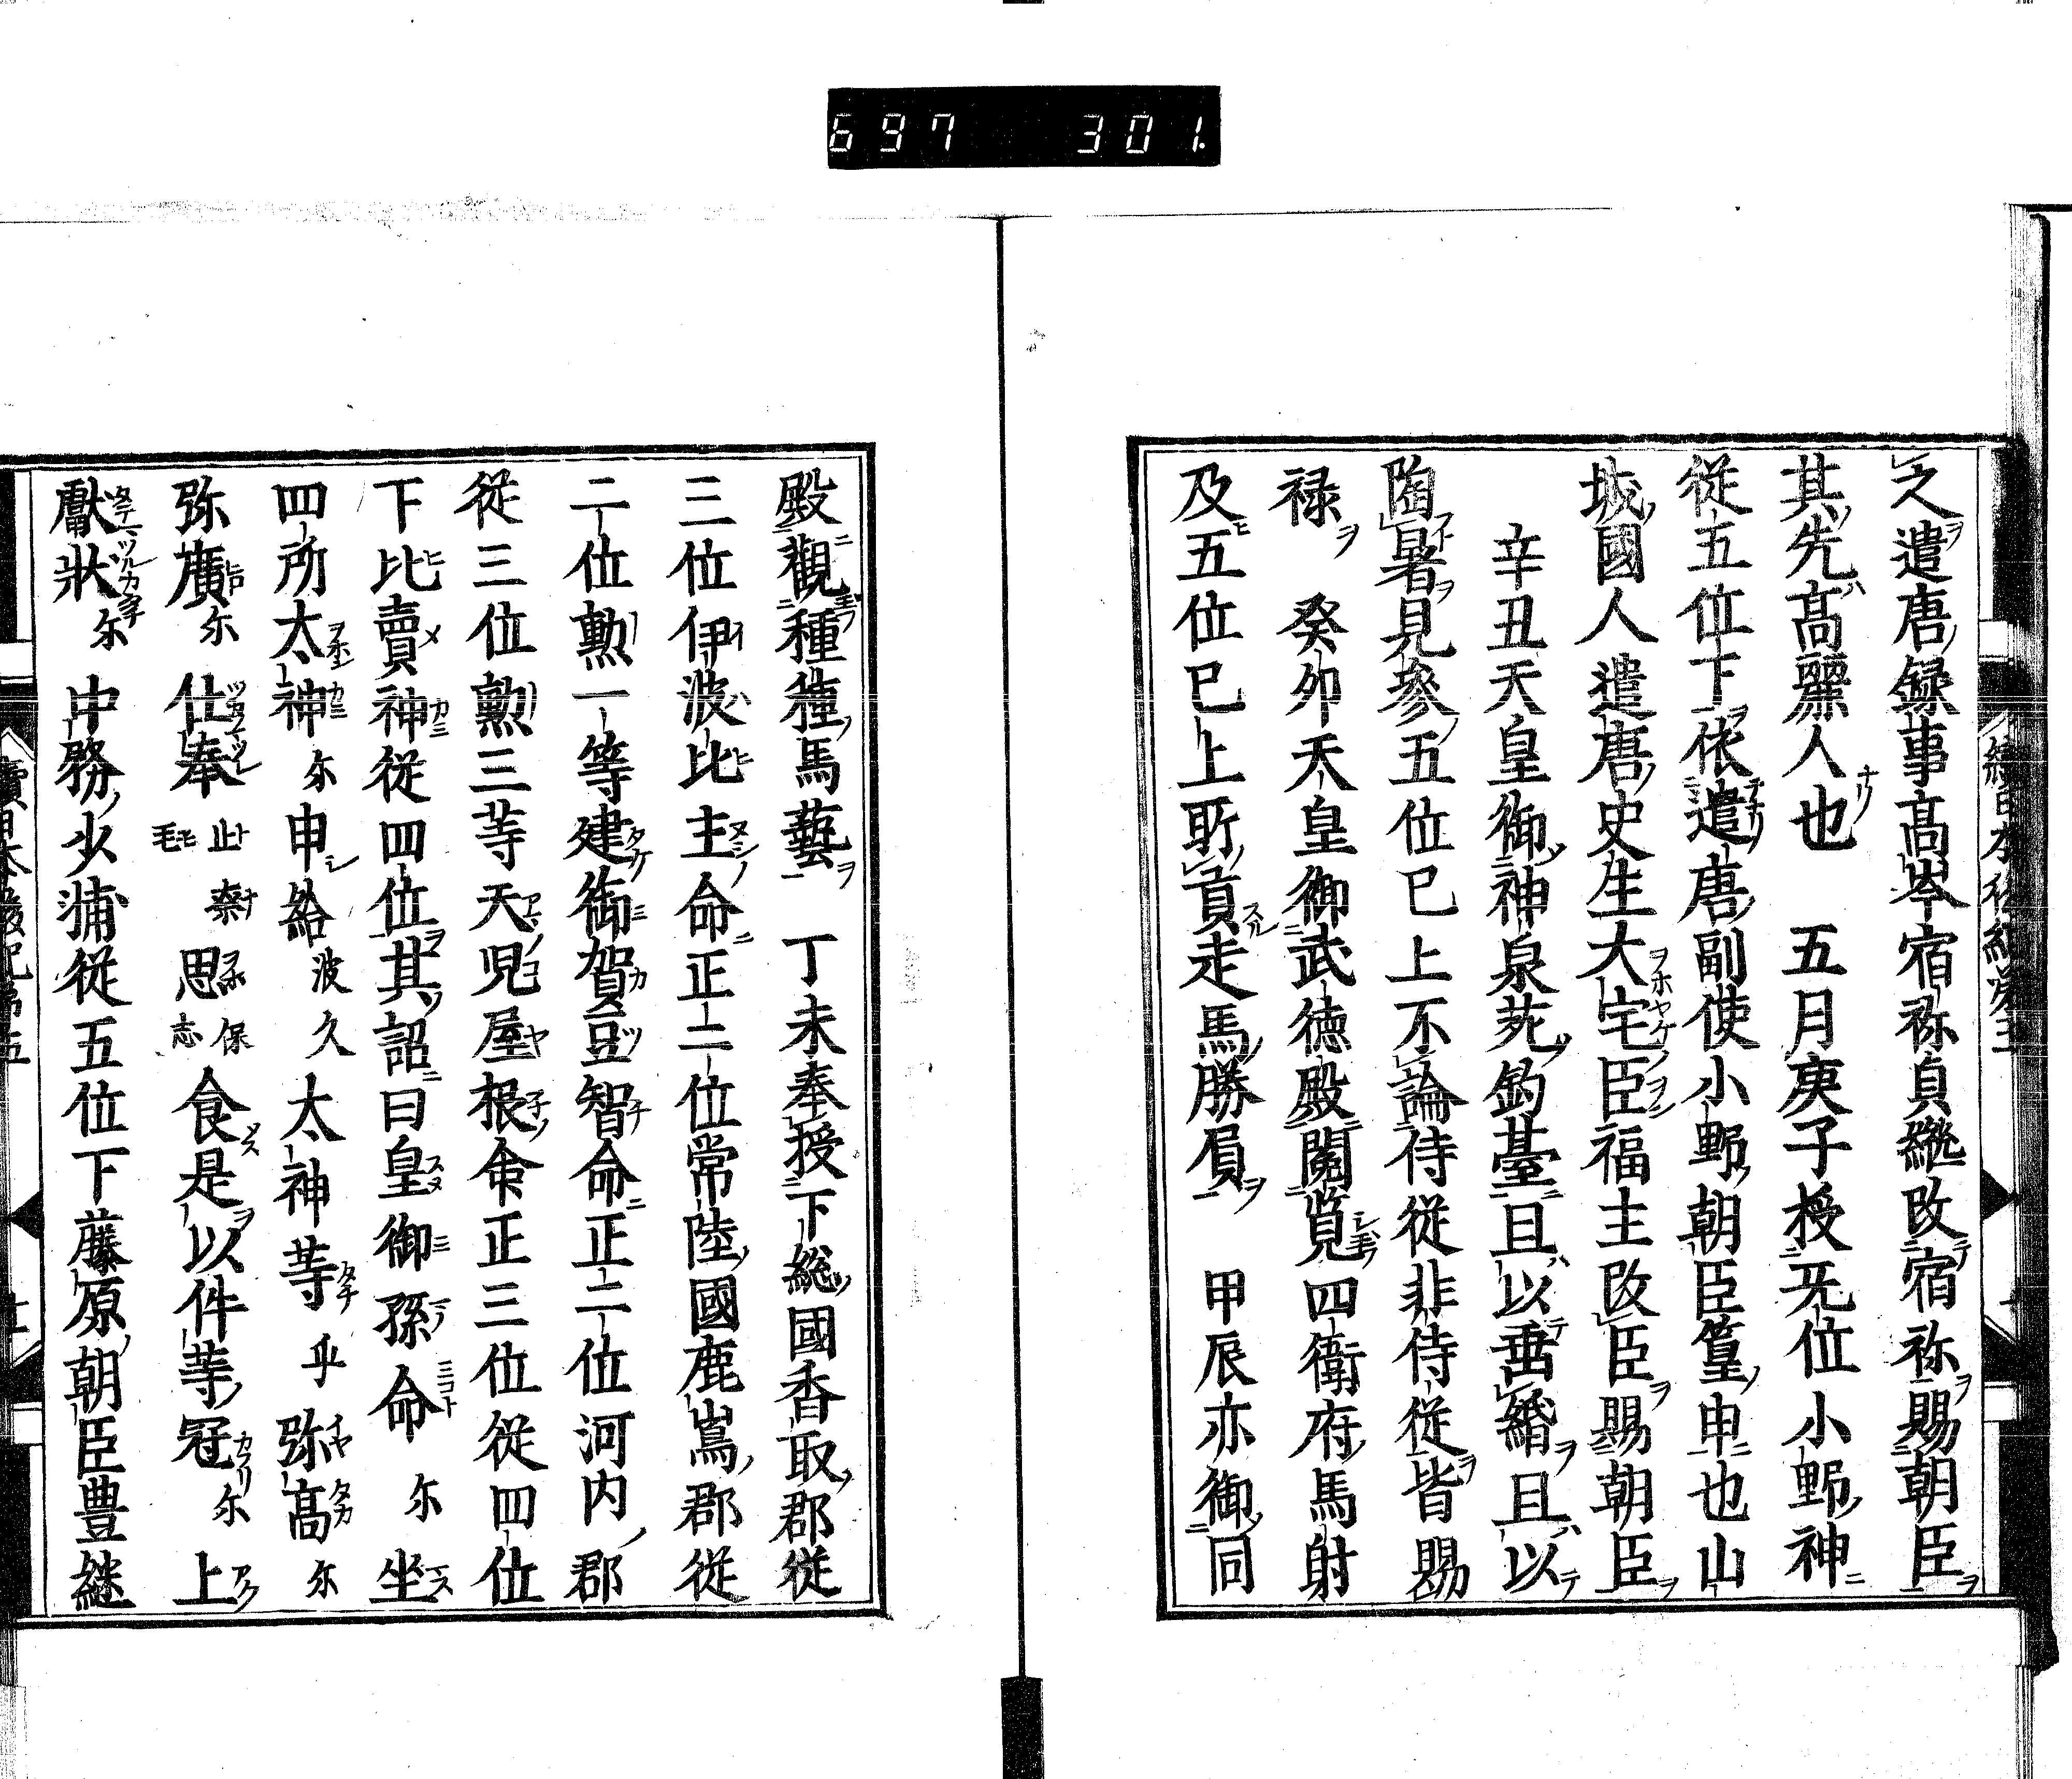 697 301.
之遣唐録事髙岑宿祢貞継改宿祢賜朝臣
其先髙麗人也　五月庚子授无位小野神
従五位下依遣唐副使小野朝臣篁申也山
城國人遣唐史生大宅臣福主改臣賜朝臣
辛丑天皇御神泉苑釣臺且以垂緡且以
陶暑見參五位已上不論侍從非侍從皆賜
禄　癸卯天皇御武徳殿閲覧四衛府馬射
及五位已上所貢走馬勝屓　甲辰亦御同
殿觀種種馬藝　丁未奉授下総國香取郡從
三位伊波比主命正二位常陸國鹿嶌郡從
二位勲一等建御賀豆智命正二位河内郡
從三位勲三等天児屋根命正三位從四位
下比賣神從四位其詔曰皇御孫命尓坐
四所太神尓申給波久太神等乎弥髙尓
弥廣尓仕奉止奈毛思保志食是以件等冠尓上
獻狀尓中務少浦從五位下藤原朝臣豊継